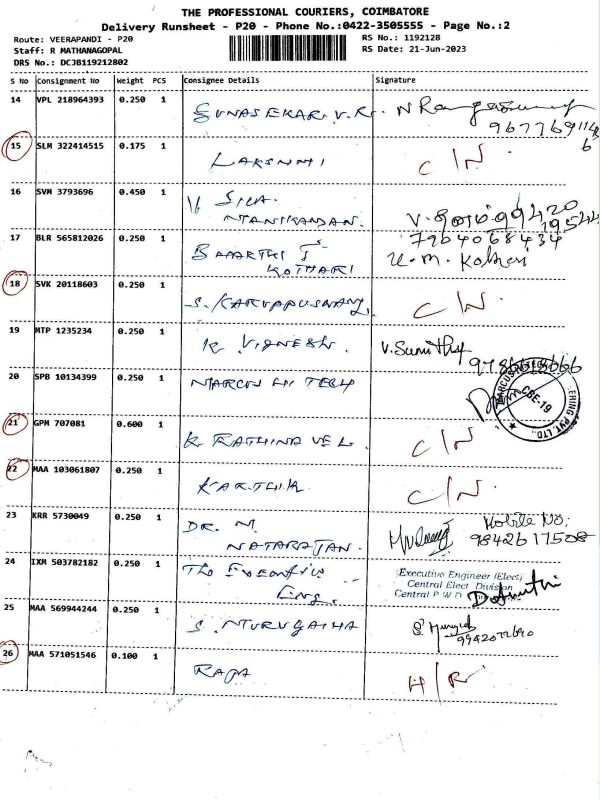 THE PROFESSIONAL COURIERS, COIMBATORE
Delivery Runsheet - P20 - Phone No.:0422-3505555 - Page No.:2
Route: VEERAPANDI - P20
RS No.: 1192128
Staff: R MATHANAGOPAL
RS Date: 21-Jun-2023
DRS No.: DCJB119212802
S No Consignment No Weight PCS Consignee Details Signature
14 VPL 218964393 0.250 1 GUNASEKAR. V. R.
15 SLM 322414515 0.175 1 LAKSHMI C/N.
16 SVM 3793696 0.450 1 V SIVA
MANIKANDAN.
17 BLR 565812026 0.250 1 BHARTHI J 7204068434
KOTHARI K. M. Kothari
18 SVK 20118603 0.250 1 S. KARUPPUSWAMY. C/N.
19 MTP 1235234 0.250 1 K VIGNESH. V. Sumithy
20 SPB 10134399 0.250 1 MARCUS HI TECH
CBE-19
21 GPM 707081 0.600 1 K RATHINAVEL. C/N
22 MAA 103061807 0.250 1 KARTHIK C/N.
23 KRR 5730049 0.250 1 DR. M. Mobile No:
NATARAJAN. 9842617508
24 IXM 503782182 0.250 1 The Executive Executive Engineer (Elect)
Eng. Central Elect Division
Central P W D
25 MAA 569944244 0.250 1 S. MURUGAIHA
26 MAA 571051546 0.100 1 RAJA H/R